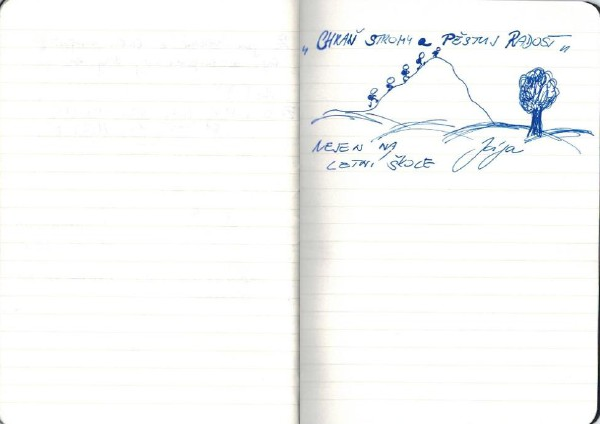 „CHRAŇ STROMY a PĚSTUJ RADOST"
NEJEN NA
LETNÍ ŠKOLE